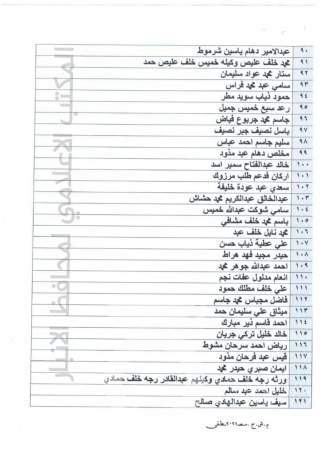 ٩٠ عبدالامير دهام ياسين شرموط
٩١ محمد خلف عليص وكيله خميس خلف عليص حمد
٩٢ ستار محمد عواد سليمان
٩٣ سامي عبد محمد فراس
٩٤ حمود ذياب سويد مطر
٩٥ رعد سبع خميس جميل
٩٦ جاسم محمد جربوع فياض
٩٧ باسل نصيف جبر نصيف
٩٨ سليم جاسم احمد عباس
٩٩ مخلص دهام عبد مذود
١٠٠ خالد عبدالفتاح سمير اسد
١٠١ اركان فدعم طلب مرزوك
١٠٢ سعدي عبد عودة خليفة
١٠٣ عبدالخالق عبدالكريم محمد حشاش
١٠٤ سامي شوكت عبدالله خميس
١٠٥ باسم محمد خلف مشافي
١٠٦ محمد نايل خلف عبد
١٠٧ علي عطية ذياب حسن
١٠٨ حيدر مجيد فهد هراط
١٠٩ احمد عبدالله جوهر محمد
١١٠ انعام مدلول عفات نجم
١١١ علي خلف مطلك حمود
١١٢ فاضل مجباس محمد جاسم
١١٣ ميثاق علي سليمان حمد
١١٤ احمد قاسم ذير مبارك
١١٥ خالد خليل تركي جريان
١١٦ رياض احمد سرحان مشوط
١١٧ قيس عبد فرحان مذود
١١٨ ايمان صبري حيدر محمد
١١٩ ورثه رجه خلف حمادي وكيلهم عبدالقادر رجه خلف حمادي
١٢٠ خليل احمد عبد سالم
١٢١ سيف ياسين عبدالهادي صالح
المكتب الاعلامي لمحافظ الانبار